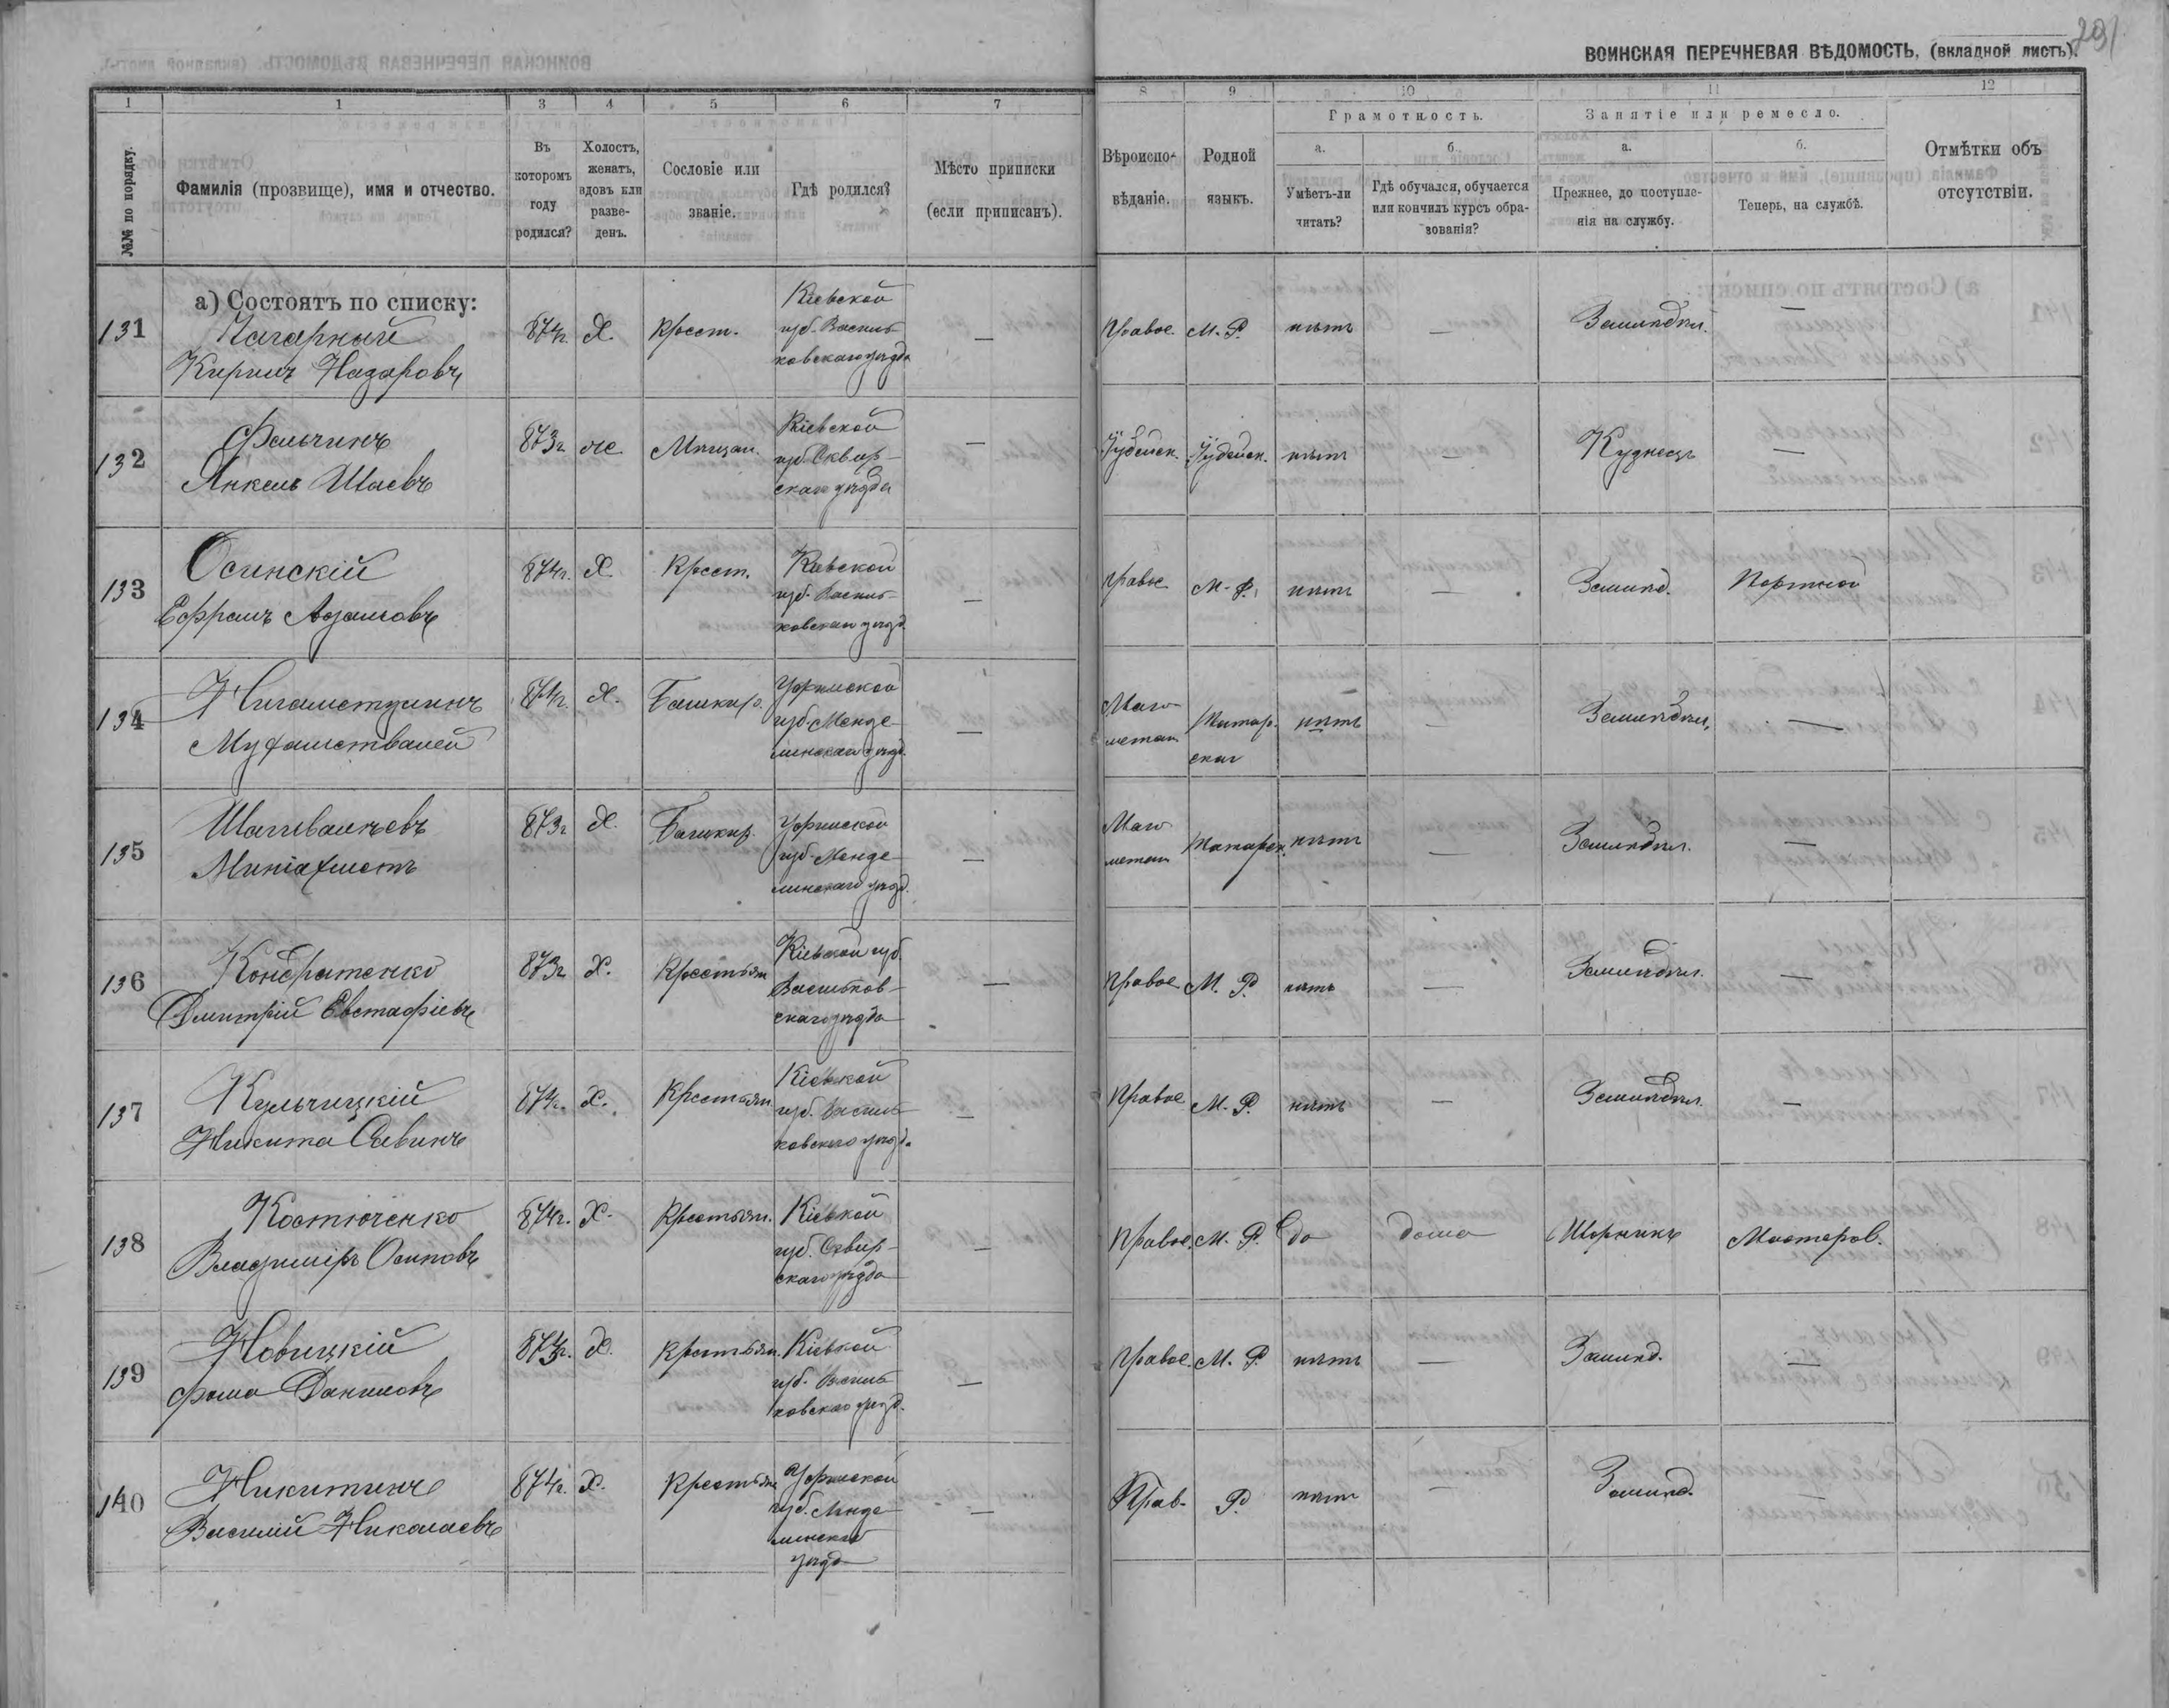 291
ВОИНСКАЯ ПЕРЕЧНЕВАЯ ВѢДОМОСТЬ. (вкладной листъ).
1 1 3 4 5 6 7 8 9 10 11 12
№№ по порядку.
Фамилія (прозвище), имя и отчество.
Въ которомъ году родился?
Холостъ, женатъ, вдовъ или разведенъ.
Сословіе или званіе.
Гдѣ родился?
Мѣсто приписки (если приписанъ).
Вѣроисповѣданіе.
Родной языкъ.
Грамотность.
а. Умѣетъ-ли читать?
б. Гдѣ обучался, обучается или кончилъ курсъ образованія?
Занятіе или ремесло.
а. Прежнее, до поступленія на службу.
б. Теперь, на службѣ.
Отмѣтки объ отсутствіи.
а) Состоятъ по списку:
131 Кирилъ Назаровъ 874г. Х. Крест. Кіевской губ. Васильковскаго уѣзда — Правос. М. Р. нѣтъ — Земледѣл. —
132 Фельчинъ Янкель Шаевъ 873г. же. Мѣщан. Кіевской губ. Сквирскаго уѣзда — Іудейск. Іудейск. нѣтъ — Кузнецъ —
133 Осинскій Ефремъ 874г. Х. Крест. Кіевской губ. Васильковскаго уѣзд. — Правос. М. Р. нѣтъ — Землед. Портной
134 Нигаметзяновъ 874г. Х. Башкир. Уфимской губ. Мензелинскаго уѣзд. — Магометан. Татарскій нѣтъ — Земледѣл. —
135 Шагивалѣевъ Миніахметъ 873г. Х. Башкир. Уфимской губ. Мензелинскаго уѣзд. — Магометан. Татарск. нѣтъ — Земледѣл. —
136 Кондратенко Дмитрій Евстафіевъ 873г. Х. Крестьян. Кіевской губ. Васильковскаго уѣзда — Правос. М. Р. нѣтъ — Земледѣл. —
137 Кульчицкій Никита Савинъ 874г. Х. Крестьян. Кіевской губ. Васильковскаго уѣзда — Правос. М. Р. нѣтъ — Земледѣл. —
138 Костюченко Владимиръ Осиповъ 874г. Х. Крестьян. Кіевской губ. Сквирскаго уѣзда — Правос. М. Р. да дома Шорникъ Мастеров.
139 Новицкій Фома Даниловъ 873г. Х. Крестьян. Кіевской губ. Васильковскаго уѣзд. — Правос. М. Р. нѣтъ — Землед. —
140 Никитинъ Василій Николаевъ 874г. Х. Крестьян. Уфимской губ. Мензелинскаго уѣзда — Прав. Р. нѣтъ — Землед. —